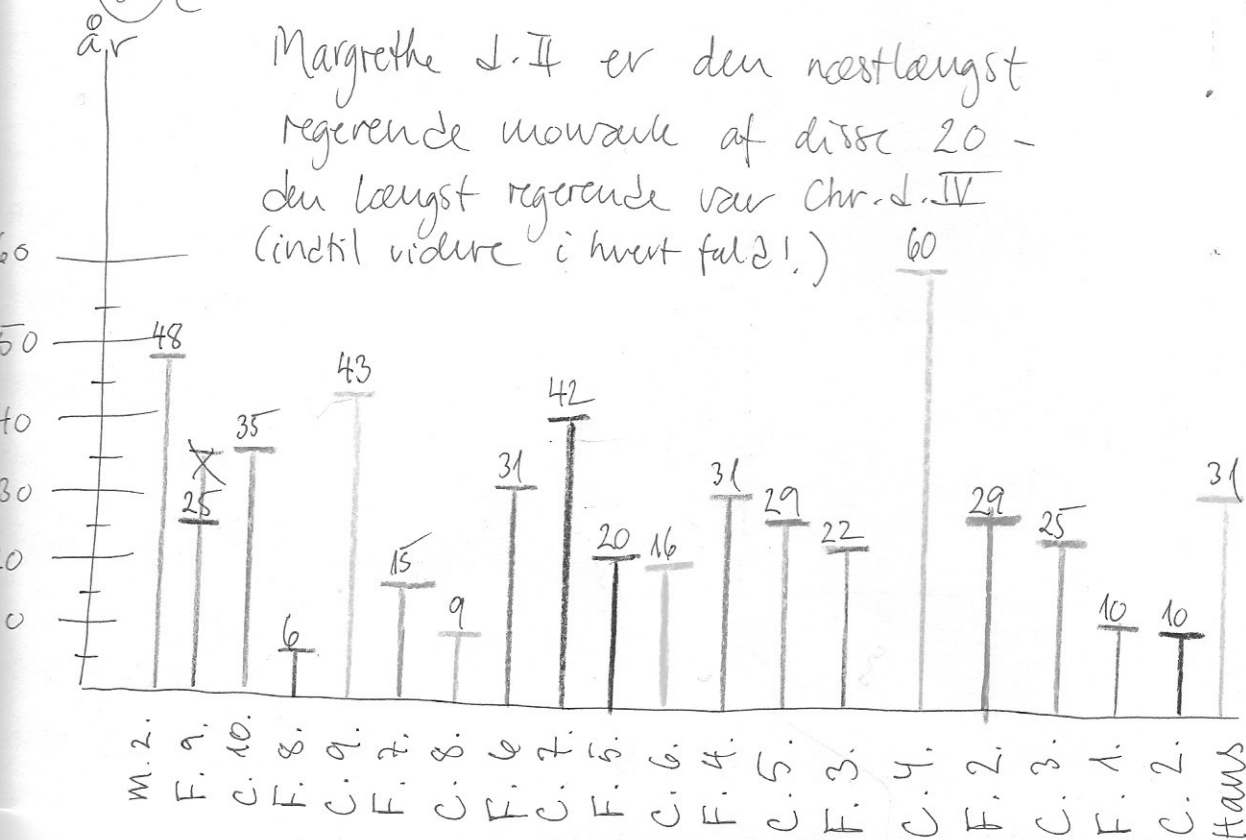 år
Margrethe d. II er den næstlængst
regerende monark af disse 20 -
den længst regerende var Chr. d. IV
(indtil videre i hvert fald!.)
60
50
40
30
20
10
48
25
35
6
43
15
9
31
42
20
16
31
29
22
60
29
25
10
10
31
m. 2.
F. 9.
C. 10.
F. 8.
C. 9.
F. 7.
C. 8.
F. 6
C. 7.
F. 5.
C. 6.
F. 4.
C. 5.
F. 3.
C. 4.
F. 2.
C. 3.
F. 1.
C. 2.
Hans